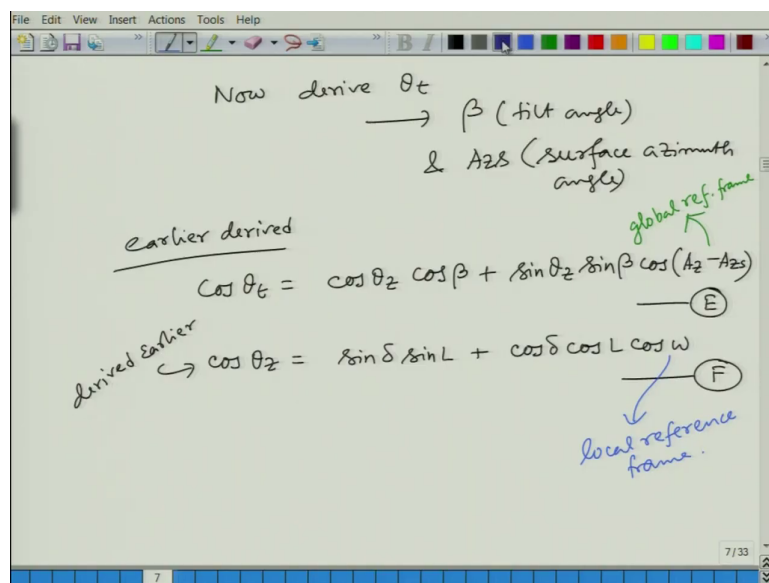 File Edit View Insert Actions Tools Help
Now derive θt
→ β (tilt angle)
& Azs (surface azimuth
angle)
global ref. frame
earlier derived
cos θt = cos θz cos β + sin θz sin β cos (Az - Azs)
E
derived earlier
cos θz = sin δ sin L + cos δ cos L cos ω
F
local reference
frame.
7/33
7